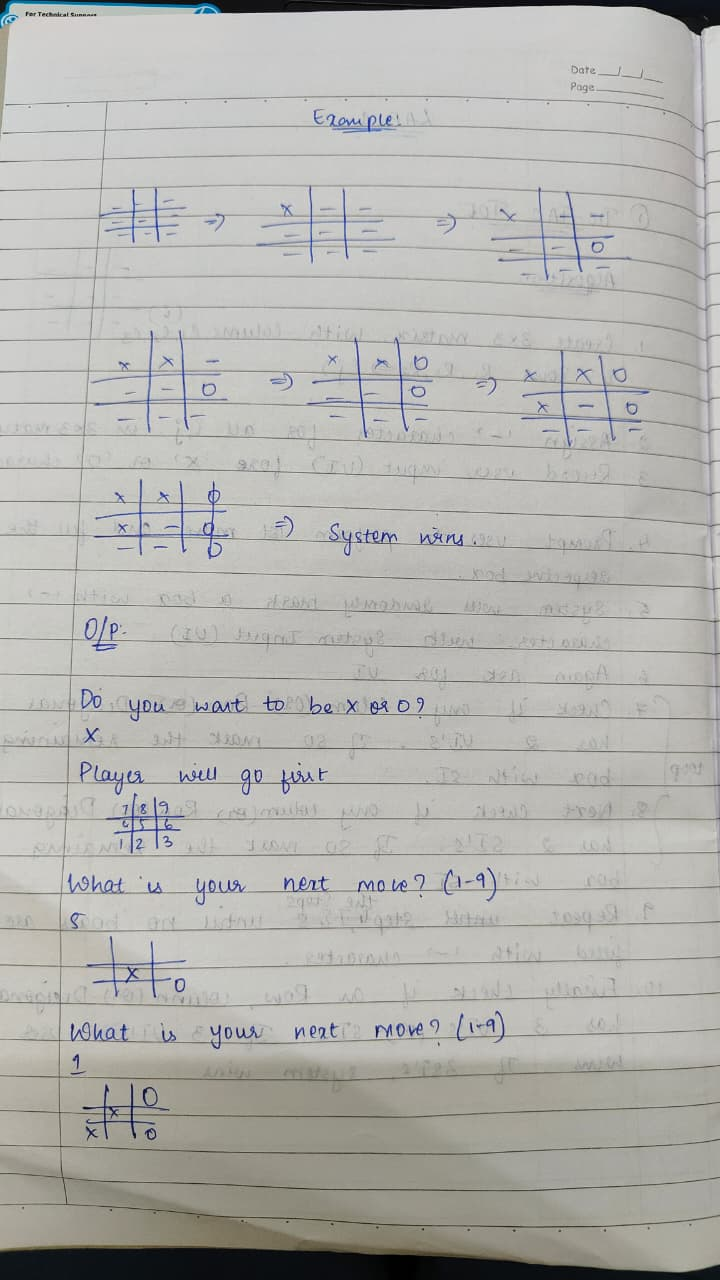 For Technical Support
Date __/__/__
Page
Example:
- - -
- - -
- - -
⇒
x | - | -
- | - | -
- | - | -
⇒
x | - | -
- | - | O
- | - | -
x | x | -
- | - | O
- | - | -
⇒
x | x | O
- | - | O
- | - | -
⇒
x | x | O
x | - | O
- | - | -
x | x | O
x | - | O
- | - | O
⇒ System wins.
O/P:
Do you want to be x or O?
x
Player will go first
7 | 8 | 9
4 | 5 | 6
1 | 2 | 3
What is your next move? (1-9)
5
x
O
What is your next move? (1-9)
1
O
x
x O